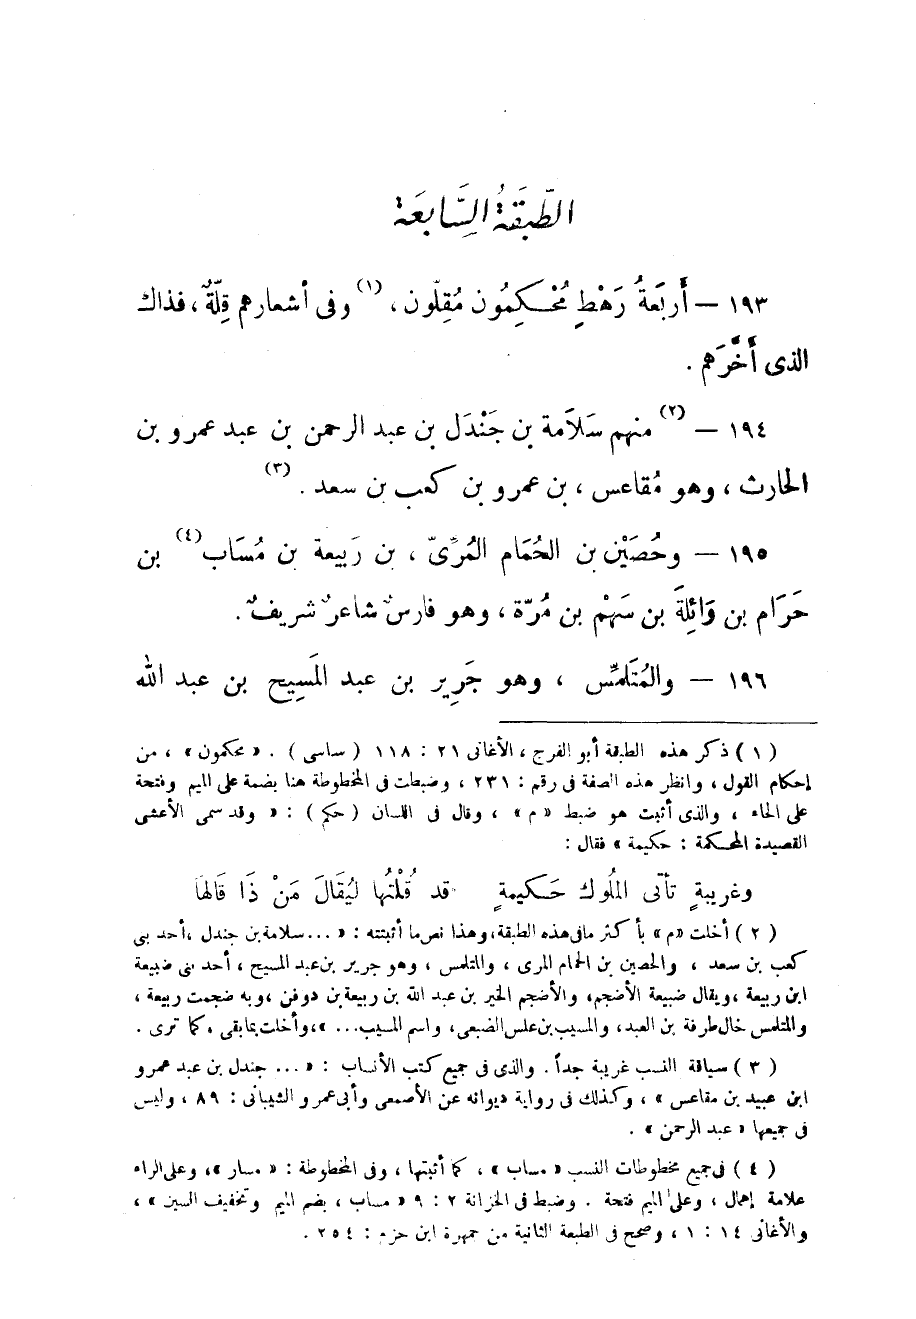 الطَّبَقَةُ السَّابِعَة
١٩٣ — أَربَعَةُ رَهْطٍ مُحْكِمُون مُقِلّون ، (١) وفى أشعارهم قِلّةٌ ، فذاك
الذى أَخَّرَهم .
١٩٤ — (٢) منهم سَلاَمة بن جَنْدَل بن عبد الرحمن بن عبد عمرو بن
الحارث ، وهو مُقاعس ، بن عمرو بن كعب بن سعد . (٣)
١٩٥ — وحُصَيْن بن الحُمَام المُرِّىّ ، بن رَبيعة بن مُسَاب (٤) بن
حَرَام بن وَائِلَةَ بن سَهْم بن مُرّة ، وهو فارسٌ شاعرٌ شريفٌ .
١٩٦ — والمُتَلمِّس ، وهو جَرِير بن عبد المَسِيح بن عبد الله
(١) ذكر هذه الطبقة أبو الفرج ، الأغانى ٢١ : ١١٨ (ساسى) . « محكمون » ، من
إحكام القول ، وانظر هذه الصفة فى رقم : ٢٣١ ، وضبطت فى المخطوطة هنا بضمة على الميم وفتحة
على الحاء ، والذى أثبت هو ضبط « م » ، وقال فى اللسان (حكم) : « وقد سمى الأعشى
القصيدة المحكمة : حكيمة » فقال :
وغريبةٍ تأتى المُلوك حَكيمةٍ قد قُلْتُها ليُقَالَ مَنْ ذَا قَالهَا
(٢) أخلت « م » بأكثر مافى هذه الطبقة ، وهذا نص ما أثبتته : « ... سلامة بن جندل ، أحد بنى
كعب بن سعد ، والحصين بن الحمام المرى ، والمتلمس ، وهو جرير بن عبد المسيح ، أحد بنى ضبيعة
ابن ربيعة ، ويقال ضبيعة الأضجم ، والأضجم الخير بن عبد الله بن ربيعة بن دوفن ، وبه ضجمت ربيعة ،
والمتلمس خال طرفة بن العبد ، والمسيب بن علس الضبعى ، واسم المسيب ... » ، وأخلت بما بقى ، كما ترى .
(٣) سياقة النسب غريبة جداً . والذى فى جميع كتب الأنساب : « ... جندل بن عبد عمرو
ابن عبيد بن مقاعس » ، وكذلك فى رواية ديوانه عن الأصمعى وأبى عمرو الشيبانى : ٨٩ ، وليس
فى جميعها « عبد الرحمن » .
(٤) فى جميع مخطوطات النسب « مساب » ، كما أثبتها ، وفى المخطوطة : « مسار » ، وعلى الراء
علامة إهمال ، وعلى الميم فتحة . وضبط فى الخزانة ٢ : ٩ « مساب ، بضم الميم وتخفيف السين » ،
والأغانى ١٤ : ١ ، وصحح فى الطبعة الثانية من جمهرة ابن حزم : ٢٥٤ .